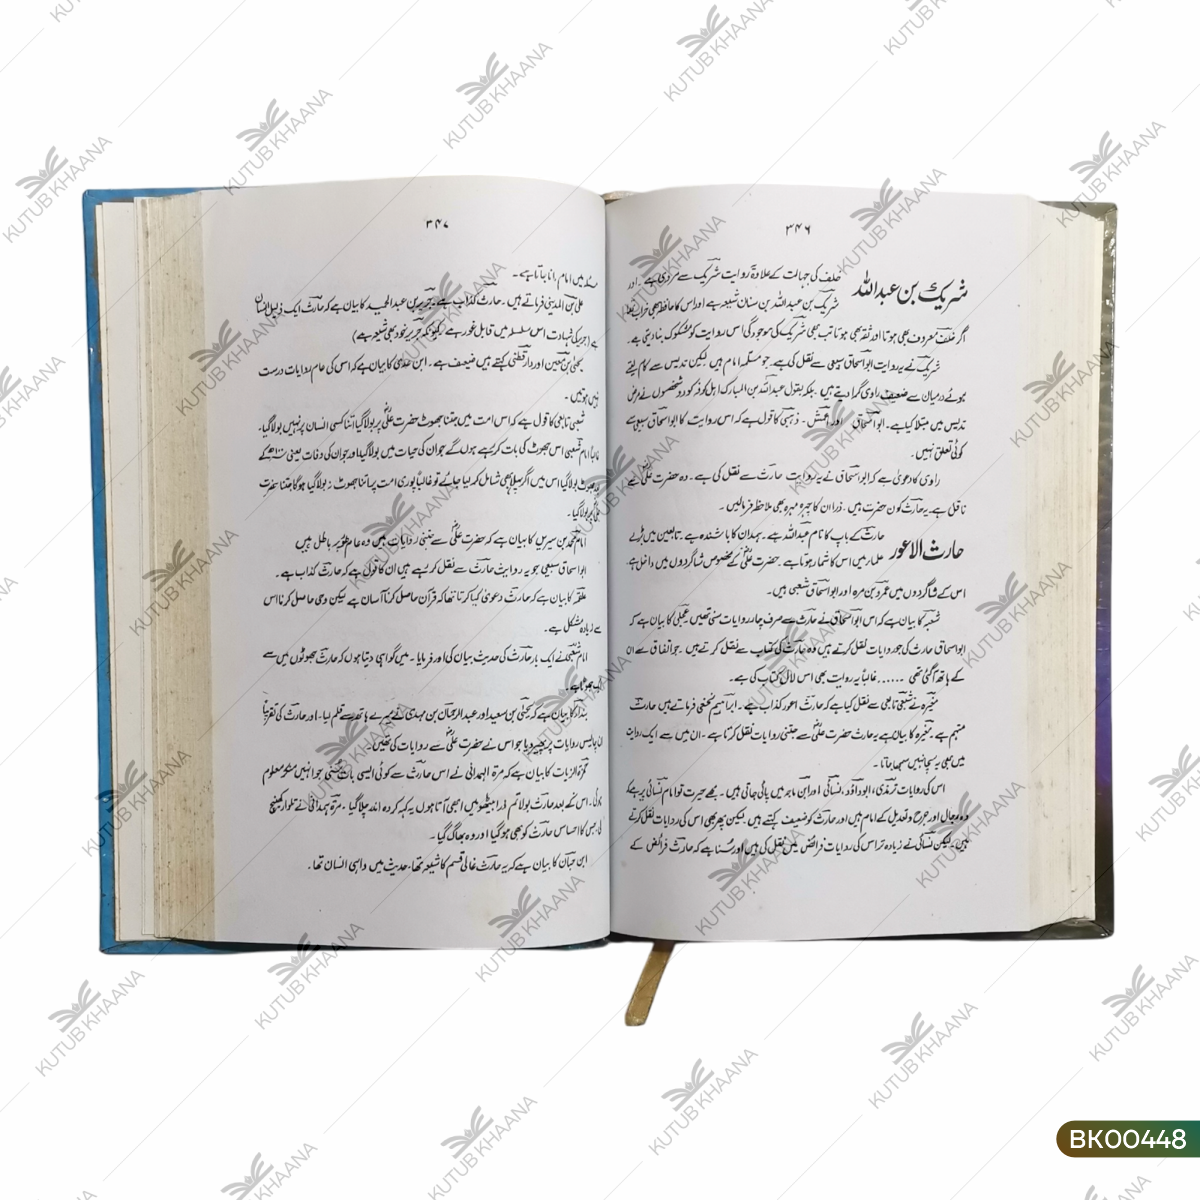 ۳۴۶
شریک بن عبداللہ
خلف کی جہالت کے علاوہ یہ روایت شریک سے مروی ہے۔ اور
شریک بن عبداللہ بن سنان شیعہ ہے اور اس کا حافظہ بھی خراب تھا
اگر خلف معروف بھی ہوتا اور ثقہ بھی ہوتا تب بھی شریک کی موجودگی اس روایت کو مشکوک بنا دیتی ہے۔
شریک نے یہ روایت ابو اسحاق سبیعی سے نقل کی ہے۔ جو مسلمہ امام ہیں لیکن تدلیس سے کام لیتے
ہوئے درمیان سے ضعیف راوی گرا دیتے ہیں۔ بلکہ بقول عبداللہ بن المبارک اہل کوفہ کو دو شخصوں نے مرض
تدلیس میں مبتلا کیا ہے۔ ابو اسحاق اور اعمش۔ ذہبی کا قول ہے کہ اس روایت کا ابو اسحاق سبیعی سے
کوئی تعلق نہیں۔
راوی کا دعویٰ ہے کہ ابو اسحاق نے یہ روایت حارث سے نقل کی ہے۔ وہ حضرت علیؓ سے
ناقل ہے۔ یہ حارث کون حضرت ہیں۔ ذرا ان کا چہرہ مہرہ بھی ملاحظہ فرمالیں۔
حارث الاعور
حارث کے باپ کا نام عبداللہ ہے۔ ہمدان کا باشندہ ہے۔ تابعین میں بڑے
علماء میں اس کا شمار ہوتا ہے۔ حضرت علیؓ کے مخصوص شاگردوں میں داخل ہے
اس کے شاگردوں میں عمرو بن مرہ اور ابو اسحاق شعبی ہیں۔
شعبہ کا بیان ہے کہ اس ابو اسحاق نے حارث سے صرف چار روایات سنی تھیں عجلی کا بیان ہے کہ
ابو اسحاق حارث کی جو روایات نقل کرتے ہیں وہ حارث کی کتاب سے نقل کرتے ہیں۔ جو اتفاق سے ان
کے ہاتھ آگئی تھی ...... غالباً یہ روایت بھی اس لال کتاب کی ہے۔
مغیرہ نے شعبی تابعی سے نقل کیا ہے کہ حارث اعور کذاب ہے۔ ابراہیم نخعی فرماتے ہیں حارث
متہم ہے۔ مغیرہ کا بیان ہے یہ حارث حضرت علیؓ سے جتنی روایات نقل کرتا ہے۔ ان میں سے ایک روایت
میں بھی یہ سچا نہیں سمجھا جاتا۔
اس کی روایات ترمذی، ابوداؤد، نسائی اور ابن ماجہ میں پائی جاتی ہیں۔ مجھے حیرت تو امام نسائی پر ہے کہ
وہ رجال اور جرح و تعدیل کے امام ہیں اور حارث کو ضعیف کہتے ہیں۔ لیکن پھر بھی اس کی روایات نقل کرتے
ہیں۔ لیکن نسائی نے زیادہ تر اس کی روایات فرائض میں نقل کی ہیں اور سنا ہے کہ حارث فرائض کے
۳۴۷
میں امام مانا جاتا ہے۔
علی بن المدینی فرماتے ہیں۔ حارث کذاب ہے۔ جریر بن عبد الحمید کا بیان ہے کہ حارث ایک ذلیل انسان
ہے (جریر کی شہادت اس سلسلہ میں قابل غور ہے کیونکہ جریر خود بھی شیعہ ہے)
یحییٰ بن معین اور دارقطنی کہتے ہیں ضعیف ہے۔ ابن عدی کا بیان ہے کہ اس کی عام روایات درست
نہیں ہوتیں۔
شعبی تابعی کا قول ہے کہ اس امت میں جتنا جھوٹ حضرت علیؓ پر بولا گیا اتنا کسی انسان پر نہیں بولا گیا۔
غالباً امام شعبی اس جھوٹ کی بات کر رہے ہوں گے جو ان کی حیات میں بولا گیا اور جو ان کی وفات یعنی کے
جھوٹ بولا گیا اس میں اگر پہلا بھی شامل کر لیا جائے تو غالباً پوری امت پر اتنا جھوٹ نہ بولا گیا ہوگا جتنا حضرت
علیؓ پر بولا گیا۔
امام محمد بن سیرین کا بیان ہے کہ حضرت علیؓ سے جتنی روایات ہیں وہ عام طور پر باطل ہیں
ابو اسحاق سبیعی جو یہ روایت حارث سے نقل کر رہے ہیں ان کا قول ہے کہ حارث کذاب ہے۔
علقمہ کا بیان ہے کہ حارث دعویٰ کیا کرتا تھا کہ قرآن حاصل کرنا آسان ہے لیکن وحی حاصل کرنا اس
سے زیادہ مشکل ہے۔
امام شعبی نے ایک بار حارث کی حدیث بیان کی اور فرمایا۔ میں گواہی دیتا ہوں کہ حارث جھوٹوں میں سے
ایک جھوٹا ہے۔
بندار کا بیان ہے کہ یحییٰ بن سعید اور عبدالرحمان بن مہدی نے میرے ہاتھ سے قلم لیا۔ اور حارث کی تقریباً
چالیس روایات پر پھیر دیا جو اس نے حضرت علیؓ سے روایات کی تھیں۔
حمزہ الزیات کا بیان ہے کہ مرۃ الہمدانی نے اس حارث سے کوئی ایسی بات سنی جو انہیں منکر معلوم
ہوئی۔ اس کے بعد حارث بولا تم ذرا بیٹھو میں ابھی آتا ہوں یہ کہہ کر وہ اندر چلا گیا۔ مرۃ ہمدانی نے تلوار کھینچ
لی جس کا احساس حارث کو بھی ہو گیا اور وہ بھاگ گیا۔
ابن حبان کا بیان ہے کہ یہ حارث غالی قسم کا شیعہ تھا۔ حدیث میں واہی انسان تھا۔
KUTUB KHAANA
BK00448